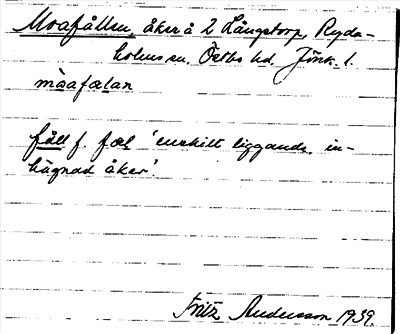 Moafållen, åker å 2 Långstorp, Ryda-
holms sn. Östbo hd. Jönk. l.
mòafælan
fåll f. fæl 'enskilt liggande, in-
hägnad åker'.
Fritz Andersson 1939.